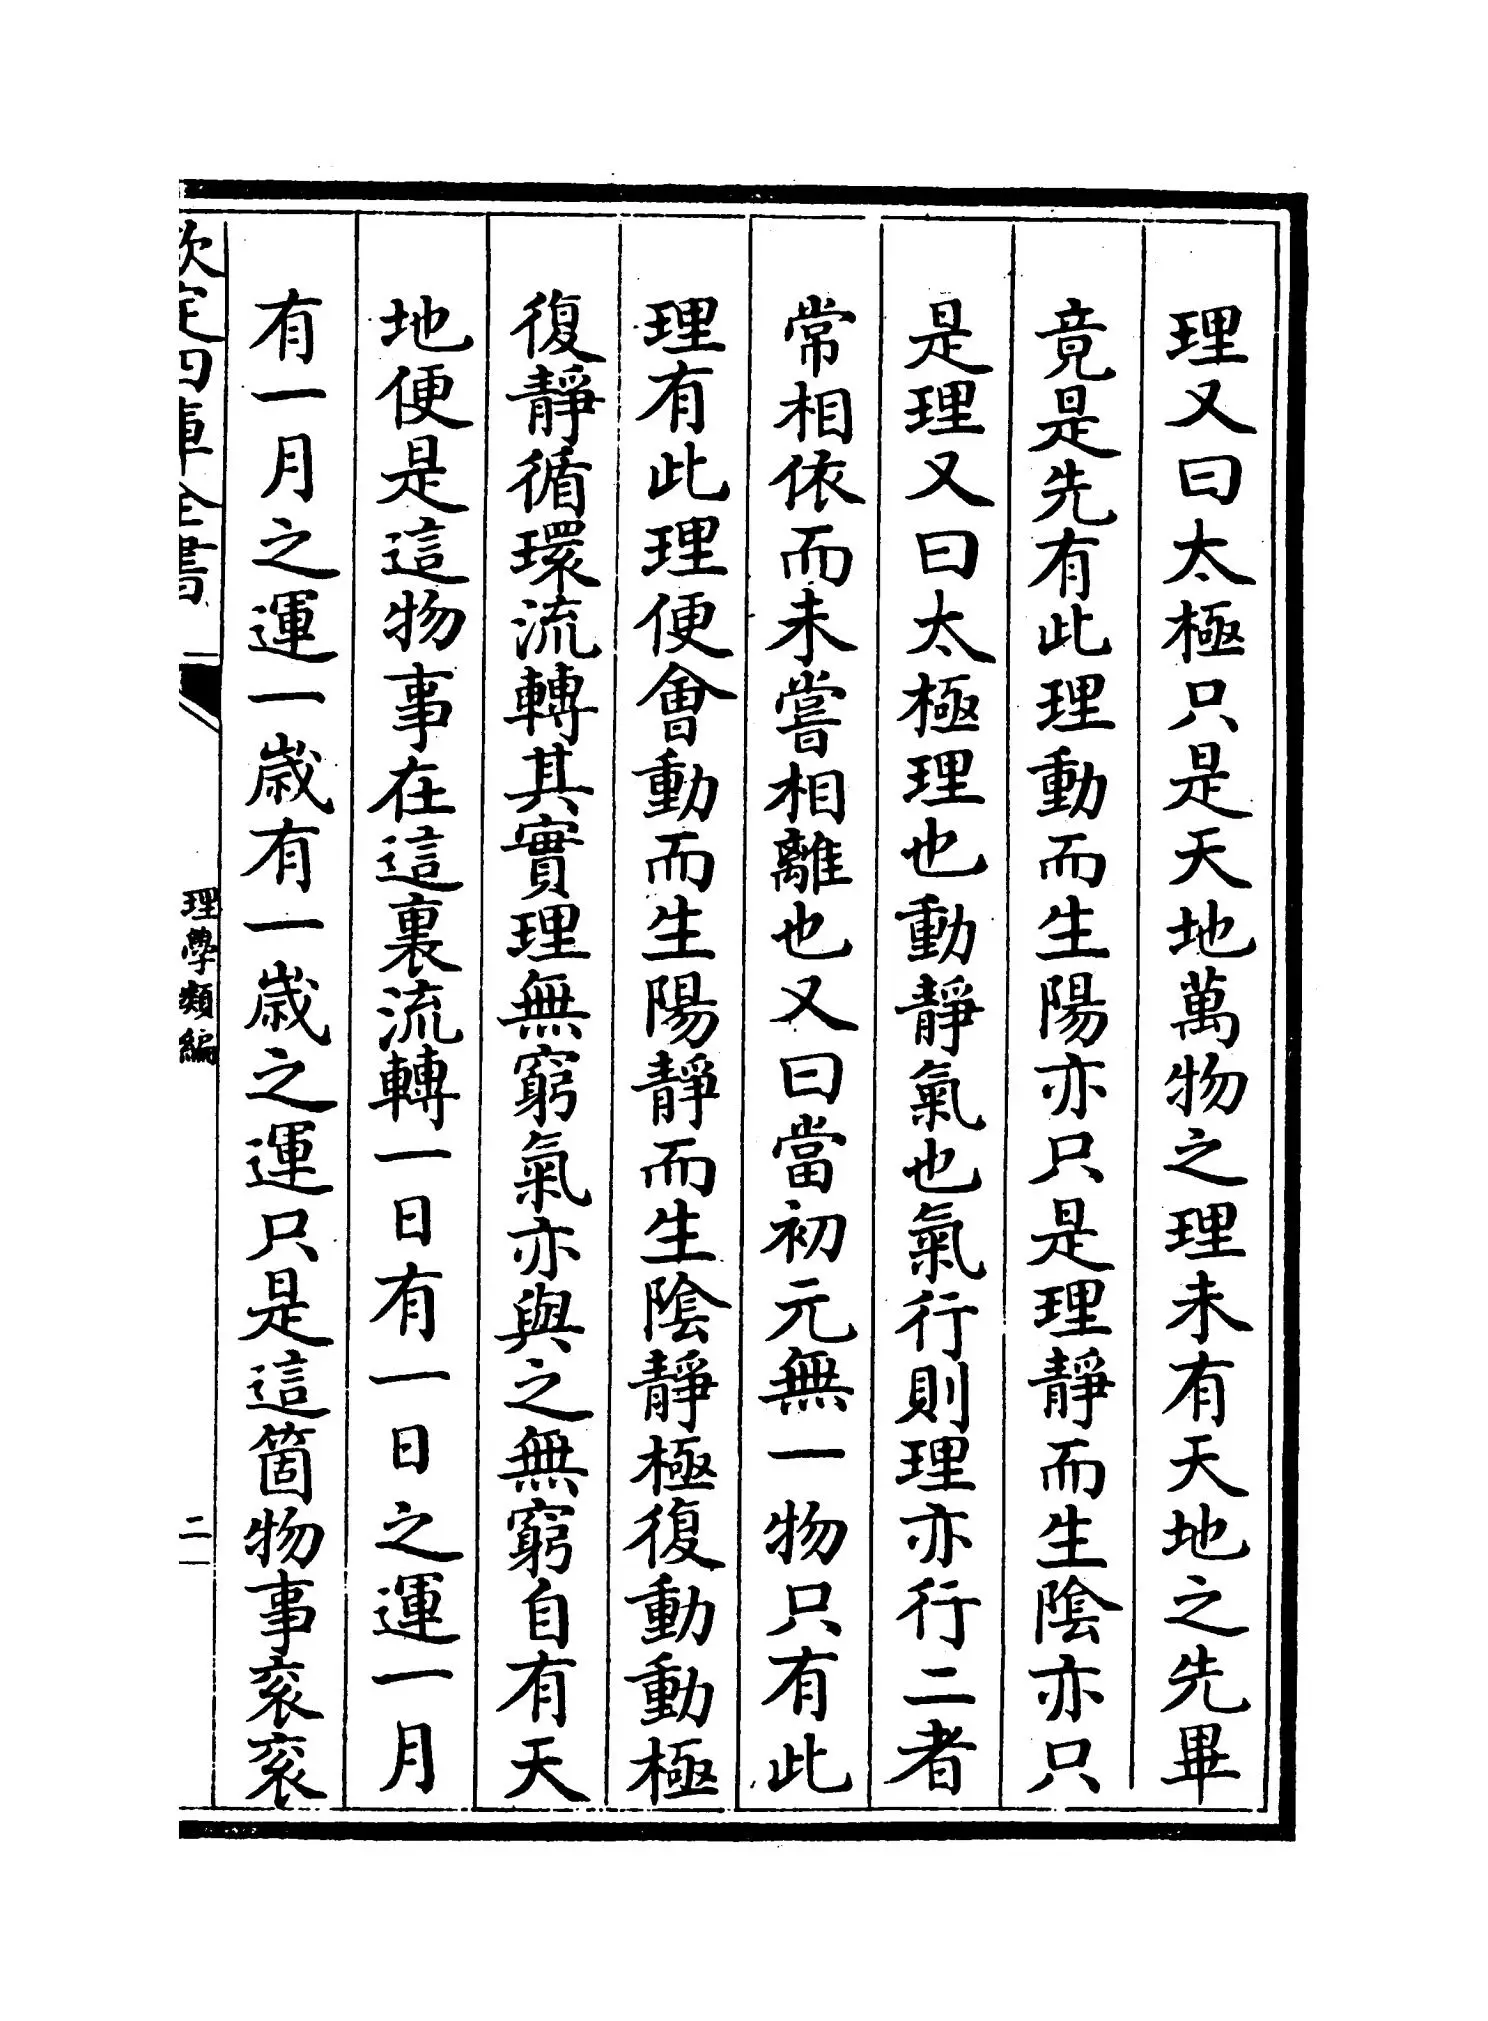 理又曰太極只是天地萬物之理未有天地之先畢
竟是先有此理動而生陽亦只是理靜而生陰亦只
是理又曰太極理也動靜氣也氣行則理亦行二者
常相依而未嘗相離也又曰當初元無一物只有此
理有此理便會動而生陽靜而生陰靜極復動動極
復靜循環流轉其實理無窮氣亦與之無窮自有天
地便是這物事在這裏流轉一日有一日之運一月
有一月之運一歲有一歲之運只是這箇物事衮衮
欽定四庫全書
理學類編
二